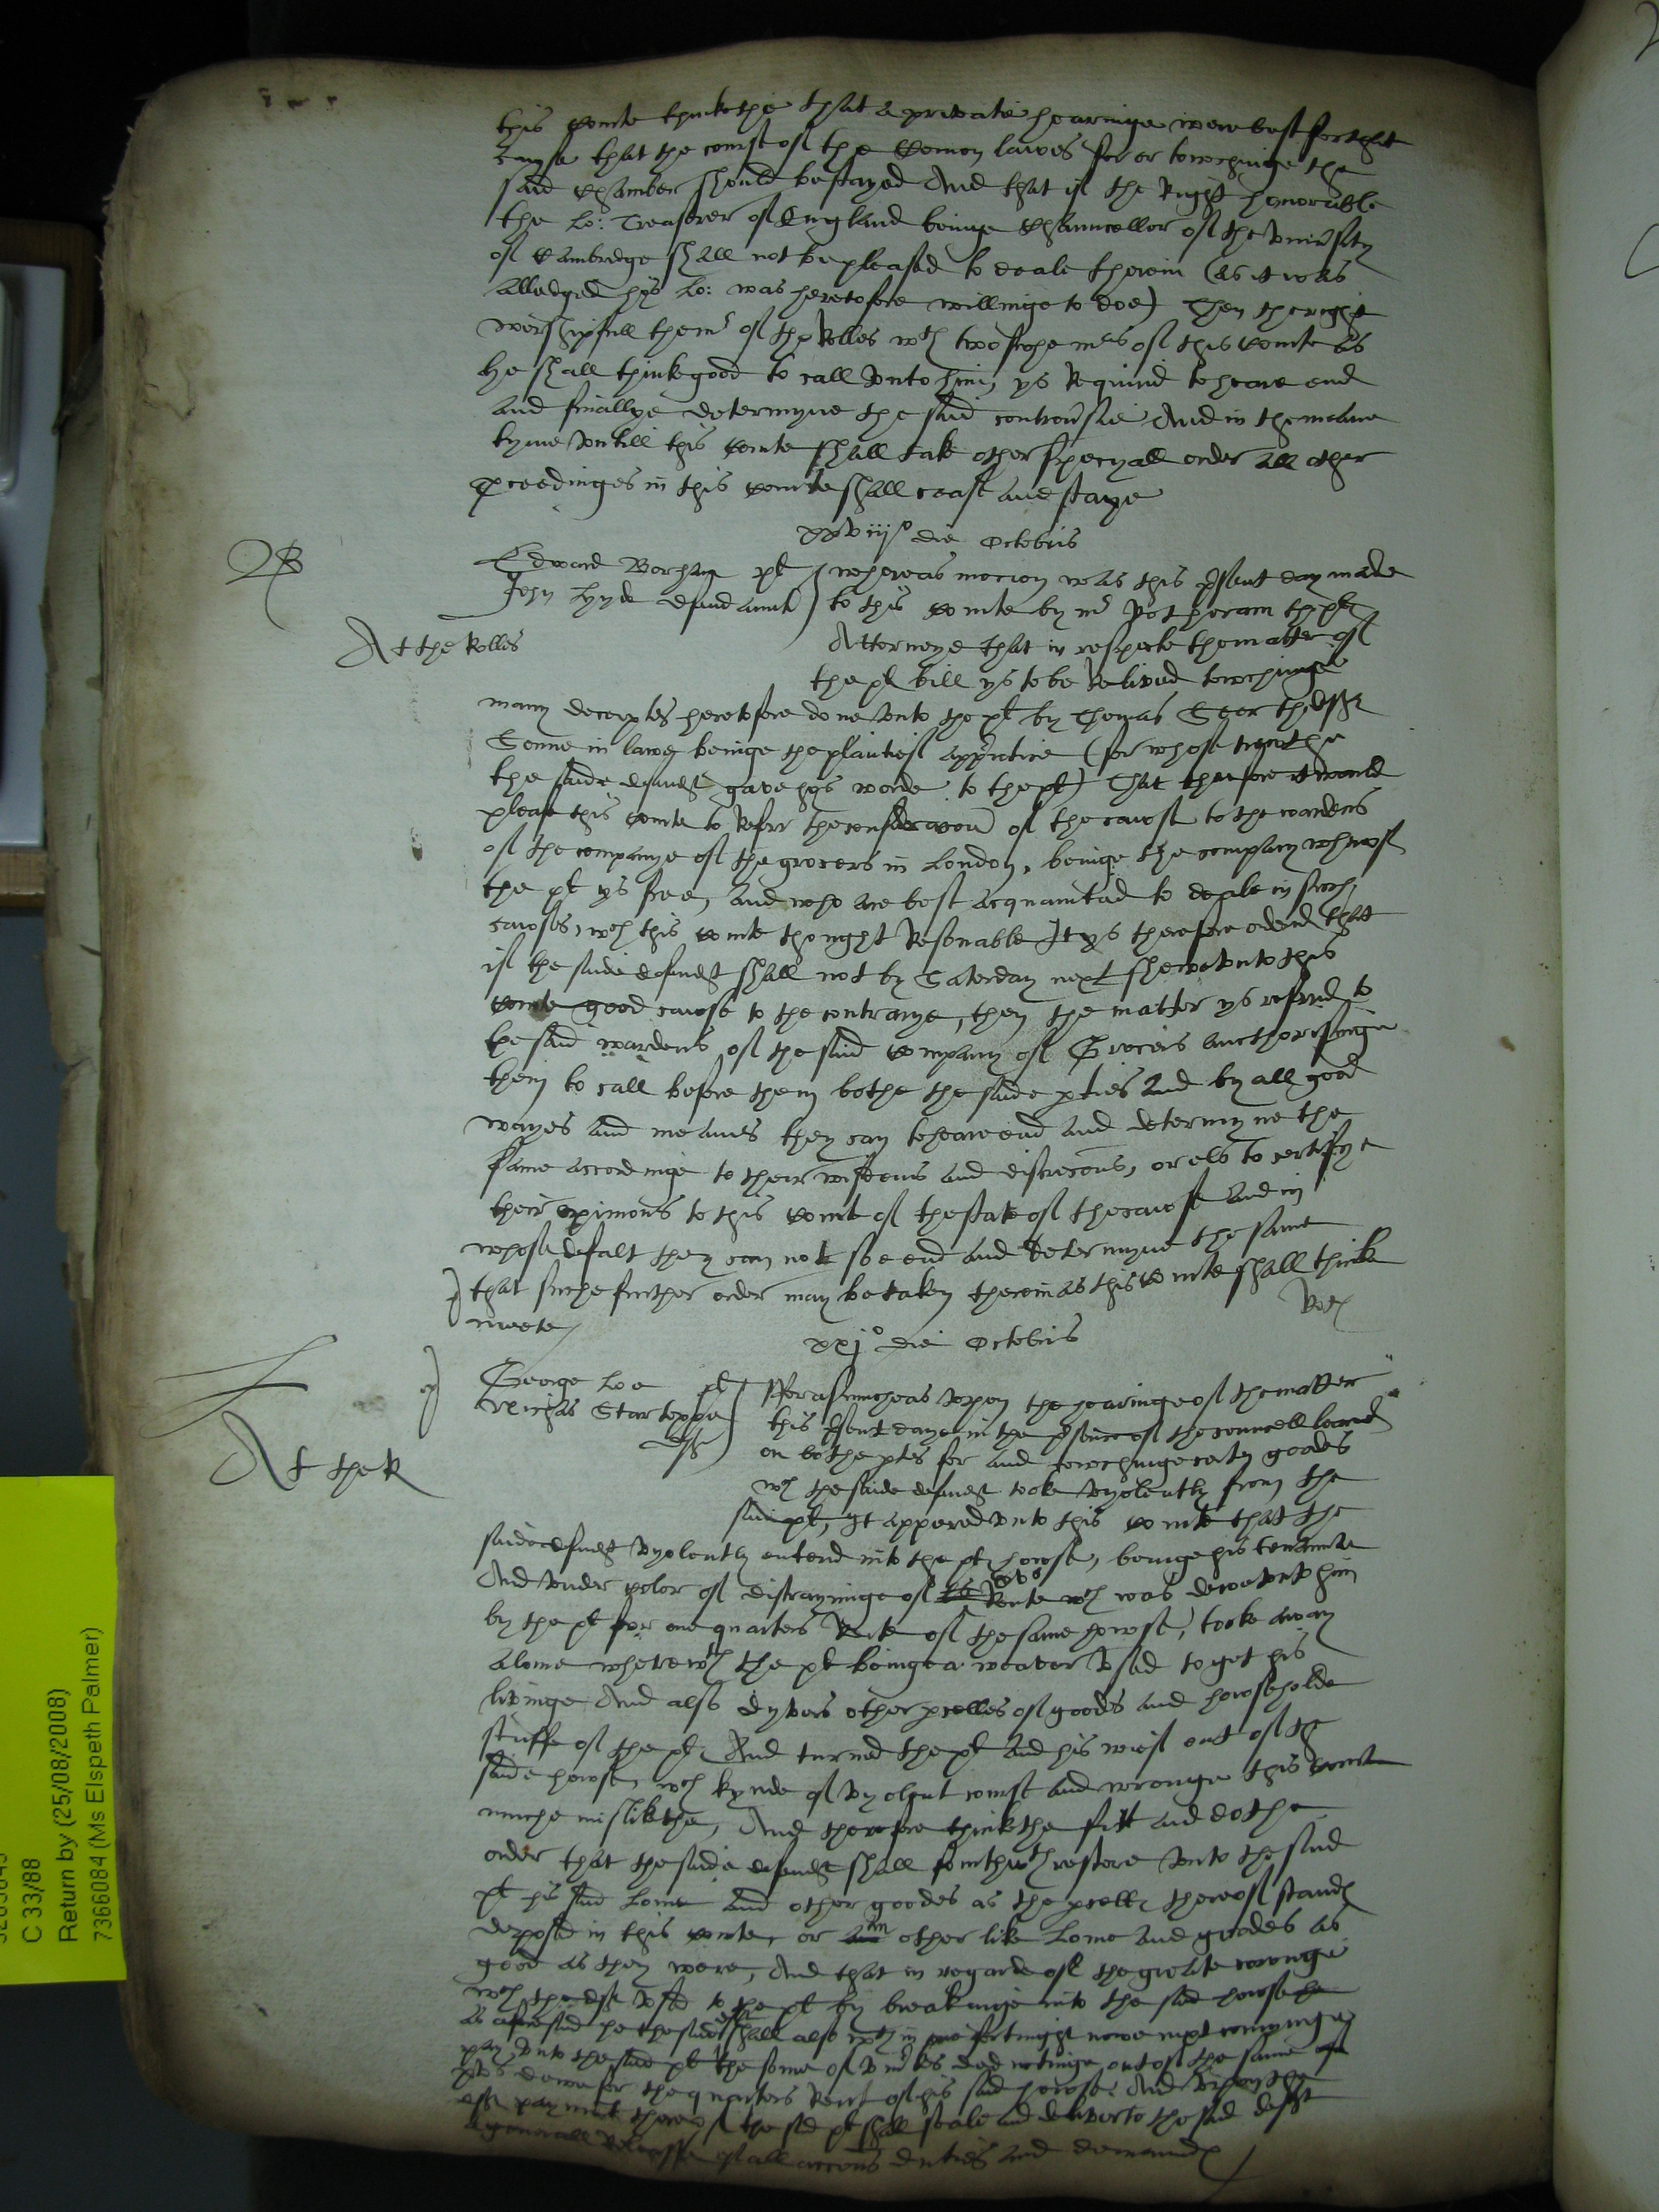 this courte thinkethe that a private hearinge were best for that
cause that the course of the Comon lawes for or towchinge the
said Chamber should be stayed And that if the Right honorable
the Lo: Treasorer of England beinge Chauncellor of the Univsity
of Cambridge shall not be pleased to deale therein (as it was
alledged hys Lo: was heretofore willinge to doe) Then the right
worshipfull the mr of the Rolles wth two suche mrs of this Courte as
he shall thinke good to call unto him, ys Required to heare end
and finallye determyne the said controvsie And in the meane
tyme untill this courte shall take other specyall order all other
pceedinges in this courte shall cease and staye
xxviijo die Octobris
Edward Barham plt
John Lynde defendaunte
whereas mocion was this psent day made
to this courte by mr the plt
At the Rolles
Attorneye that in respecte the matter of
the plt bill ys to be Relived towchinge
many deceyptes heretofore done unto the plt by Thomas the deft
Sonne in lawe beinge the plaintief apprntice (for whose truthe
the saide defendt gave hys worde to the plt) That therfore it would
please this courte to Referr the consideracon of the cawse to the wardens
of the companye of the grocers in London, beinge the company wherof
the plt ys free, and who are best acquainted to deale in such
cawses, wch this courte thought Resonable It ys therefore ordered that
if the saide defendt shall not by Saterday next shewe unto this
courte good cawse to the contrarye, then the matter ys referred to
the said wardens of the said Company of Grocers aucthorisinge
them to call before them bothe the saide pties and by all good
wayes and meanes they can to heare end and determyne the
same accordinge to their wisdoms and discrecons, or els to certifye
their opinions to this courte of the state of the cawse and in
whose defalt they can not soe end and determyne the same
that suche further order may be taken therein as this courte shall thinke
meete
xxjo die Octobris
George Loe plt
Nichas Startoppe
deft
Fforasmuche as uppon the hearinge of the matter
this psent daye in the psence of the councell learned
on bothe ptes for and towchinge certen goodes
At the R
wch the saide defendt tooke vyolently from the
said plt, It appered unto this courte that the
saide defendt vyolently entered into the plt howse, beinge his tenaunte
And under color of distrayninge of Rente wch was dewe unto him
by the plt for one quarters Rente of the same howse, tooke away
a lome wherewth the plt beinge a weaver used to get his
livinge And also dyvers other pcelles of goods and howsholde
stuffe of the plt And turned the plt and his wief out of the
saide howse, wch kynde of vyolent course and wronge this courte
muche mislikethe, And therefore thinkethe fitt and dothe
order that the saide defendt shall forthwth restore unto the said
plt his said Lome and other goodes as the pcells therof stand
deposed in this courte, or other like Lome and goodes as
good as they were, And that in regarde of the greate wronge
wch the deft used to the plt by breakinge into the said howse
as aforesaid he the saide deft shall also wth in fortnight nowe next comynge
pay unto the said plt the some of deductinge out of the same
for the quarters Rent of his said howse. And uppon the
payment therof the sd plt shall seale and deliver to the said defendt
a generall Releasse of all accons duties and demaundes
C 33/88
Return by (25/08/2008)
7366084 (Ms Elspeth Palmer)